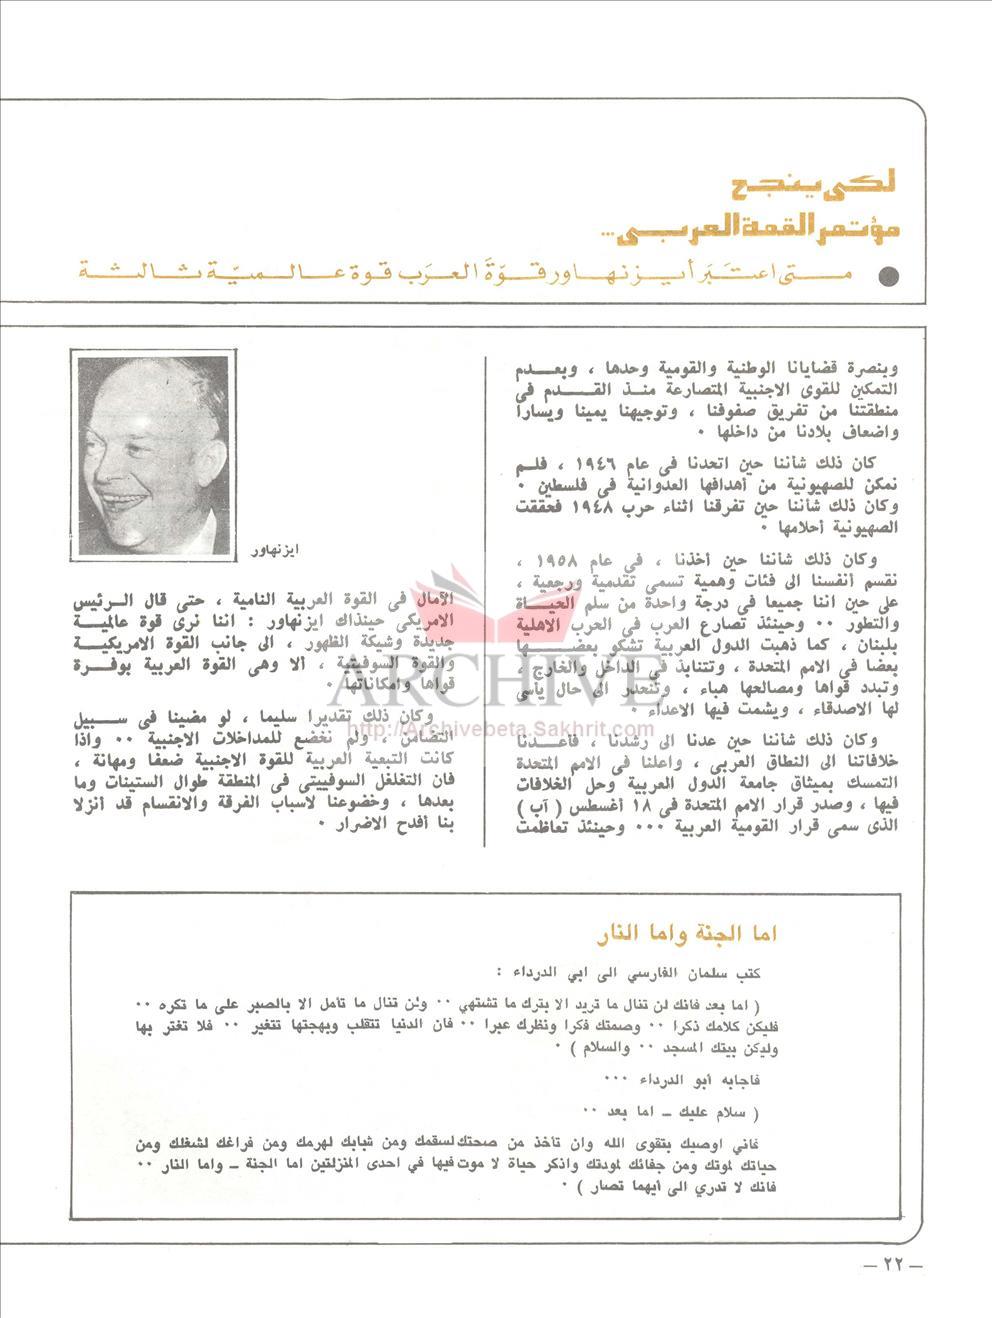 لكى ينجح
مؤتمر القمة العربى ..
● متى اعتبر أيزنهاور قوة العرب قوة عالمية ثالثة
وبنصرة قضايانا الوطنية والقومية وحدها ، وبعدم
التمكين للقوى الاجنبية المتصارعة منذ القدم فى
منطقتنا من تفريق صفوفنا ، وتوجيهنا يمينا ويسارا
واضعاف بلادنا من داخلها ٠
كان ذلك شأننا حين اتحدنا فى عام ١٩٤٦ ، فلم
نمكن للصهيونية من أهدافها العدوانية فى فلسطين ٠
وكان ذلك شأننا حين تفرقنا اثناء حرب ١٩٤٨ فحققت
الصهيونية أحلامها ٠
وكان ذلك شأننا حين أخذنا ، فى عام ١٩٥٨ ،
نقسم أنفسنا الى فئات وهمية تسمى تقدمية ورجعية ،
على حين اننا جميعا فى درجة واحدة من سلم الحياة
والتطور ٠٠ وحينئذ تصارع العرب فى الحرب الاهلية
بلبنان ، كما ذهبت الدول العربية تشكو بعضها
بعضا فى الامم المتحدة ، وتتنابذ فى الداخل والخارج ،
وتبدد قواها ومصالحها هباء ، وتنحدر الى حال يأسى
لها الاصدقاء ، ويشمت فيها الاعداء ٠
وكان ذلك شأننا حين عدنا الى رشدنا ، فاعدنا
خلافاتنا الى النطاق العربى ، واعلنا فى الامم المتحدة
التمسك بميثاق جامعة الدول العربية وحل الخلافات
فيها ، وصدر قرار الامم المتحدة فى ١٨ أغسطس ( آب )
الذى سمى قرار القومية العربية ٠٠٠ وحينئذ تعاظمت
ايزنهاور
الآمال فى القوة العربية النامية ، حتى قال الرئيس
الامريكى حينذاك ايزنهاور : اننا نرى قوة عالمية
جديدة وشيكة الظهور ، الى جانب القوة الامريكية
والقوة السوفيتية ، ألا وهى القوة العربية بوفرة
قواها وامكاناتها ٠
وكان ذلك تقديرا سليما ، لو مضينا فى سبيل
التضامن ، ولم نخضع للمداخلات الاجنبية ٠٠ واذا
كانت التبعية العربية للقوة الاجنبية ضعفا ومهانة ،
فان التغلغل السوفييتى فى المنطقة طوال الستينات وما
بعدها ، وخضوعنا لاسباب الفرقة والانقسام قد أنزلا
بنا أفدح الاضرار ٠
ARCHIVE
http://Archivebeta.Sakhrit.com
اما الجنة واما النار
كتب سلمان الفارسي الى ابي الدرداء :
( اما بعد فانك لن تنال ما تريد الا بترك ما تشتهي ٠٠ ولن تنال ما تأمل الا بالصبر على ما تكره ٠٠
فليكن كلامك ذكرا ٠٠ وصمتك فكرا ونظرك عبرا ٠٠ فان الدنيا تتقلب وبهجتها تتغير ٠٠ فلا تغتر بها
وليكن بيتك المسجد ٠٠ والسلام ) ٠
فاجابه أبو الدرداء ٠٠٠
( سلام عليك ـ اما بعد ٠٠
فاني اوصيك بتقوى الله وان تأخذ من صحتك لسقمك ومن شبابك لهرمك ومن فراغك لشغلك ومن
حياتك لموتك ومن جفائك لمودتك واذكر حياة لا موت فيها في احدى المنزلتين اما الجنة ـ واما النار ٠٠
فانك لا تدري الى أيهما تصار ) ٠
— ٢٢ —